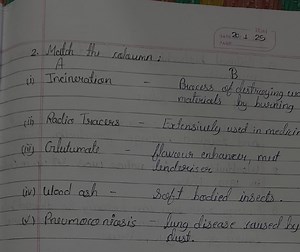 2. Match the column:
A B
(i) Incineration - Process of destroying
materials by burning
(ii) Radio Tracers - Extensively used in medicin
(iii) Glutumate - flavour enhancer, meet
tenderiser
(iv) Wood ash - soft bodied insects.
(v) Pneumoconiosis - lung disease caused by
dust.